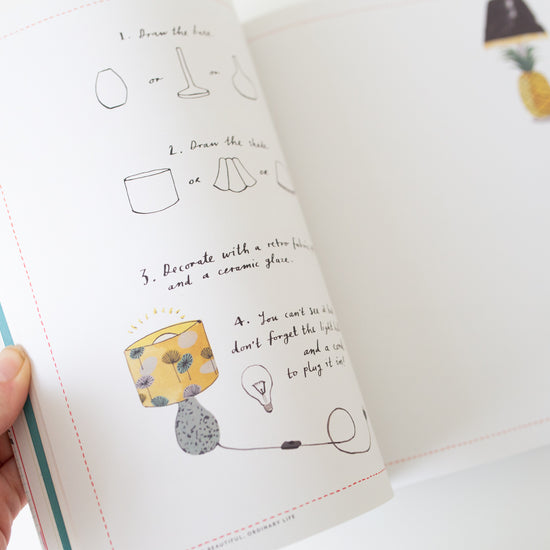 1. Draw the base
or
or
2. Draw the shade
or
or
3. Decorate with a retro
and a ceramic glaze.
4. You can't see it
don't forget the light
and a cord
to plug it in!
BEAUTIFUL, ORDINARY LIFE